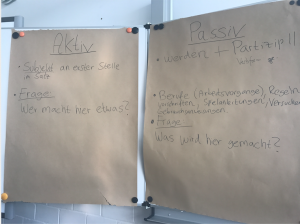 Aktiv
• Subjekt an erster Stelle
im Satz
• Frage
Wer macht hier etwas?
Passiv
• werden + Partizip II
• Berufe (Arbeitsvorgänge), Regeln
• Frage
Was wird hier gemacht?